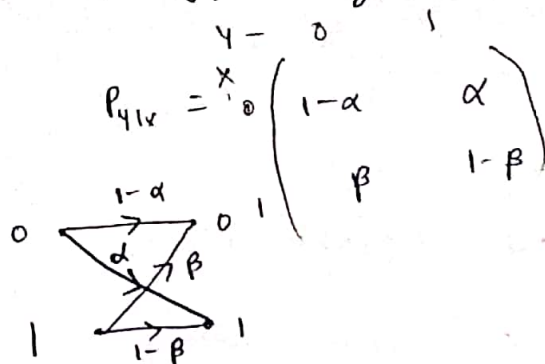 y - 0 1
P_{y|x} = x 0 ( 1-α α
1 β 1-β )
1-α
0 0
α β
1 1
1-β